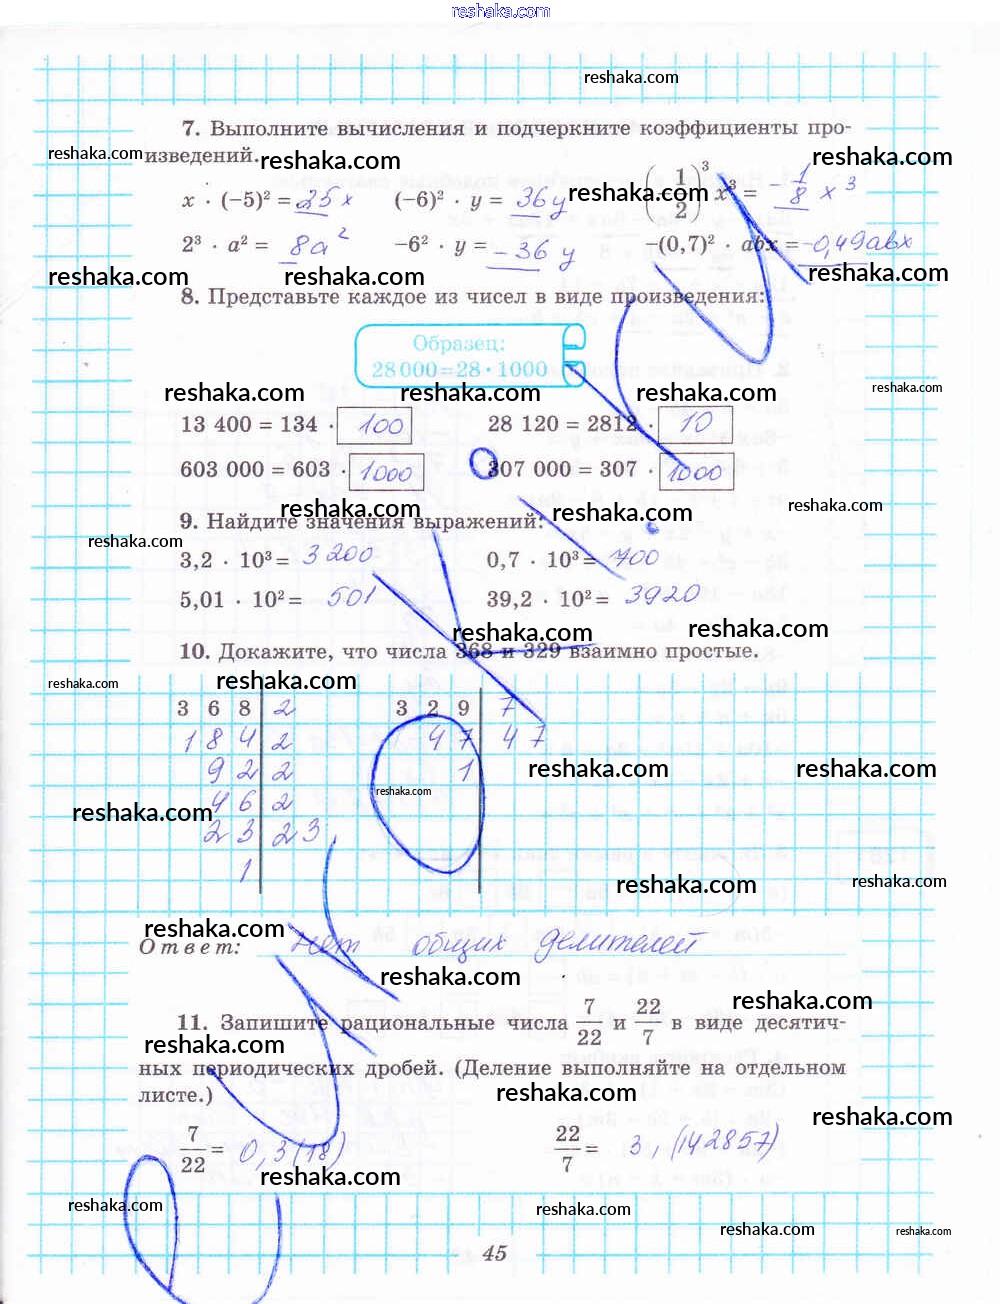 reshaka.com
reshaka.com
7. Выполните вычисления и подчеркните коэффициенты про-
reshaka.com изведений. reshaka.com reshaka.com
x · (−5)² = 25x (−6)² · y = 36y reshaka.com (−1/2)³ x³ = −1/8 x³
2³ · a² = 8a² −6² · y = −36y −(0,7)² · abx = −0,49abx
reshaka.com reshaka.com reshaka.com
8. Представьте каждое из чисел в виде произведения:
Образец:
28 000=28 · 1000
reshaka.com reshaka.com reshaka.com
13 400 = 134 · 100 28 120 = 2812 · 10
603 000 = 603 · 1000 307 000 = 307 · 1000
reshaka.com reshaka.com reshaka.com
9. Найдите значения выражений:
reshaka.com
3,2 · 10³ = 3200 0,7 · 10³ = 700
5,01 · 10² = 501 39,2 · 10² = 3920
reshaka.com reshaka.com
10. Докажите, что числа 368 и 329 взаимно простые.
reshaka.com reshaka.com
368 2 329 7
184 2 47 47
92 2 1
reshaka.com reshaka.com
46 2
reshaka.com reshaka.com
23 23
1
reshaka.com reshaka.com
reshaka.com
Ответ: Нет общих делителей
reshaka.com
reshaka.com
11. Запишите рациональные числа 7/22 и 22/7 в виде десятич-
reshaka.com
ных периодических дробей. (Деление выполняйте на отдельном
листе.) reshaka.com
reshaka.com
7/22 = 0,3(18) 22/7 = 3,(142857)
reshaka.com
reshaka.com reshaka.com
reshaka.com reshaka.com
45